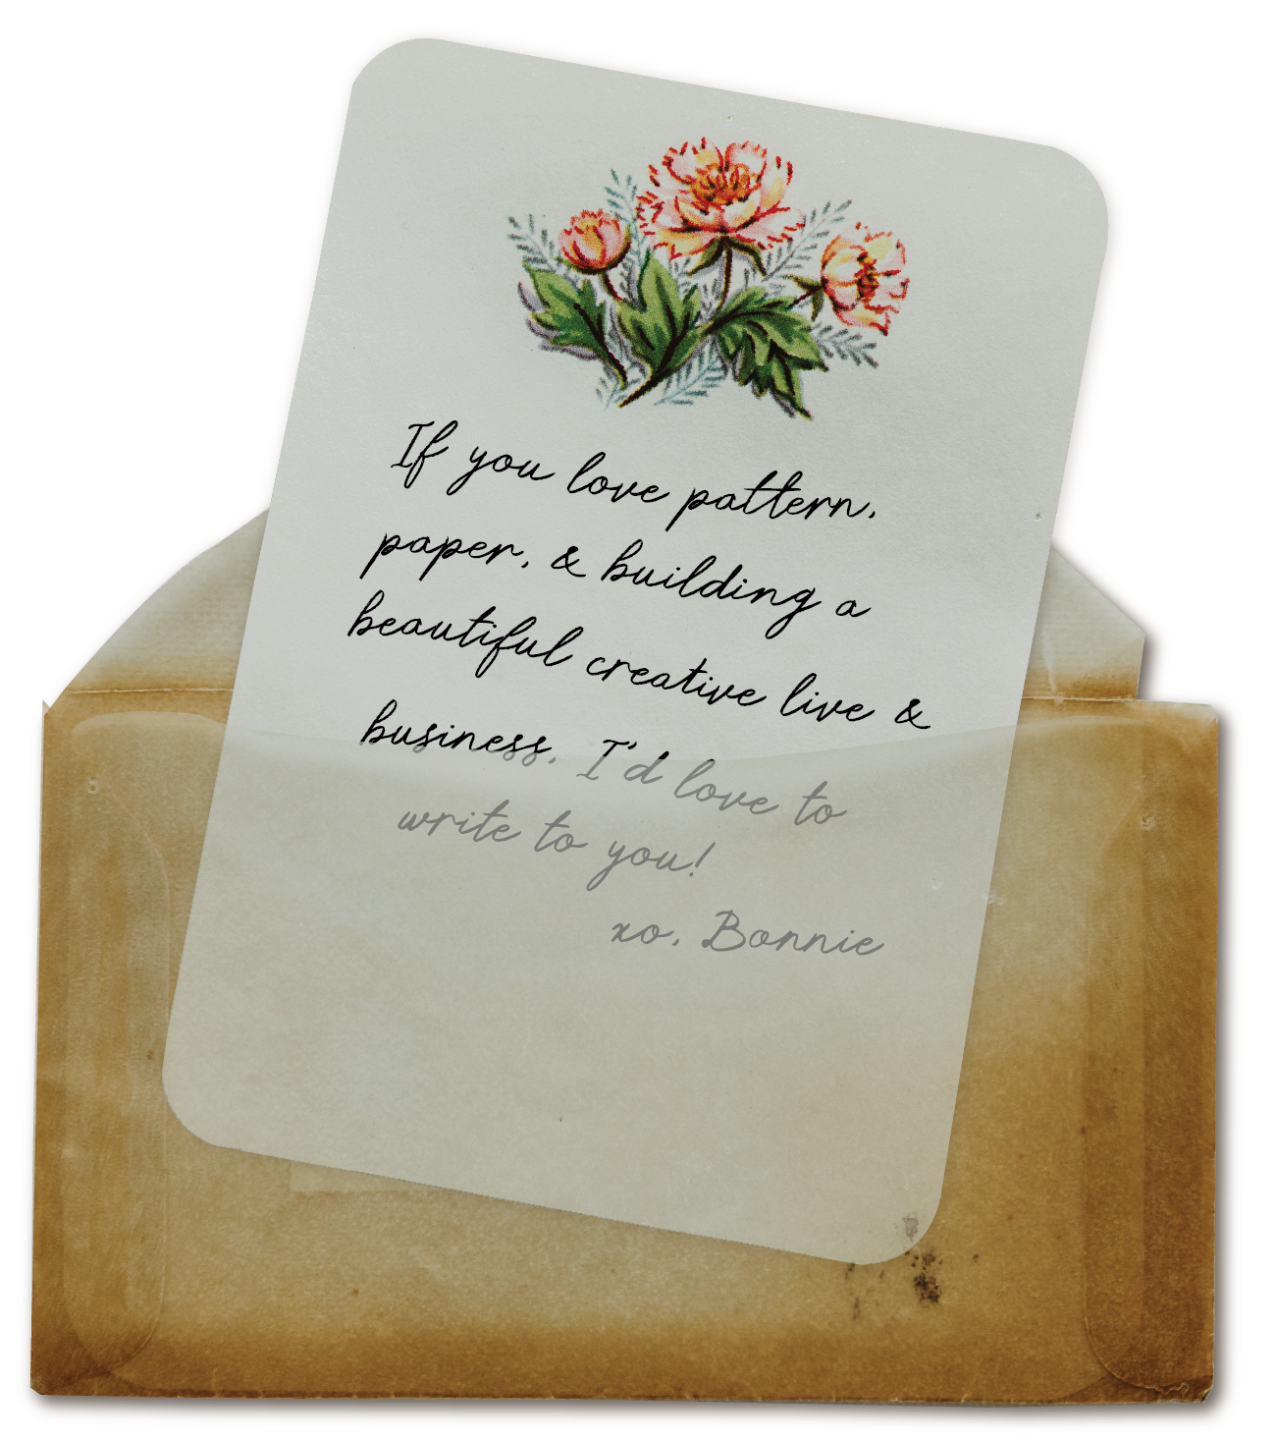 If you love pattern,
paper, & building a
beautiful creative live &
business, I'd love to
write to you!
xo, Bonnie